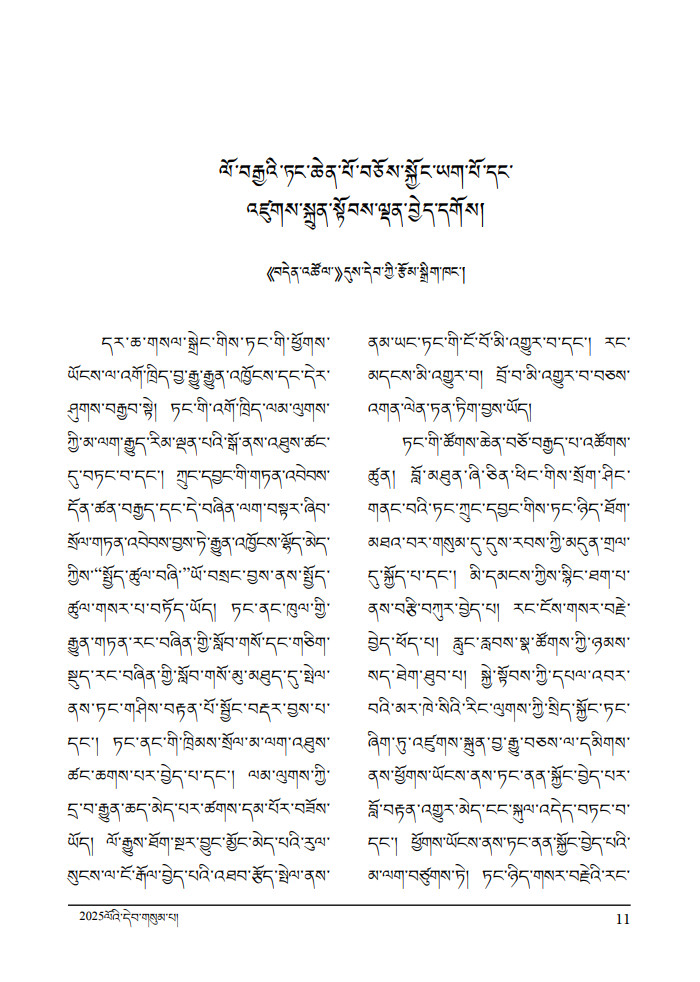 ལོ་བརྒྱའི་ཏང་ཆེན་པོ་བཅོས་སྐྱོང་ཡག་པོ་དང་
འཛུགས་སྐྲུན་སྟོབས་ལྡན་བྱེད་དགོས།
《བདེན་འཚོལ་》དུས་དེབ་ཀྱི་རྩོམ་སྒྲིག་ཁང་།
དར་ཆ་གསལ་སྒྲེང་གིས་ཏང་གི་ཕྱོགས་
ཡོངས་ལ་འགོ་ཁྲིད་བྱ་རྒྱུ་རྒྱུན་འཁྱོངས་དང་དེར་
ཤུགས་བརྒྱབ་སྟེ། ཏང་གི་འགོ་ཁྲིད་ལམ་ལུགས་
ཀྱི་མ་ལག་རྒྱུད་རིམ་ལྡན་པའི་སྒོ་ནས་འཐུས་ཚང་
དུ་བཏང་བ་དང་། ཀྲུང་དབྱང་གི་གཏན་འབེབས་
དོན་ཚན་བརྒྱད་དང་དེ་བཞིན་ལག་བསྟར་ཞིབ་
སྲོལ་གཏན་འབེབས་བྱས་ཏེ་རྒྱུན་འཁྱོངས་ལྷོད་མེད་
ཀྱིས་“སྤྱོད་ཚུལ་བཞི་”ཡོ་བསྲང་བྱས་ནས་སྤྱོད་
ཚུལ་གསར་པ་བཏོད་ཡོད། ཏང་ནང་ཁུལ་གྱི་
རྒྱུན་གཏན་རང་བཞིན་གྱི་སློབ་གསོ་དང་གཅིག་
སྡུད་རང་བཞིན་གྱི་སློབ་གསོ་མུ་མཐུད་དུ་སྤེལ་
ནས་ཏང་གཤིས་བརྟན་པོ་སྦྱོང་བརྡར་བྱས་པ་
དང་། ཏང་ནང་གི་ཁྲིམས་སྲོལ་མ་ལག་འཐུས་
ཚང་ཆགས་པར་བྱེད་པ་དང་། ལམ་ལུགས་ཀྱི་
དྲ་བ་རྒྱུན་ཆད་མེད་པར་ཚགས་དམ་པོར་བཟོས་
ཡོད། ལོ་རྒྱུས་ཐོག་སྔར་བྱུང་མྱོང་མེད་པའི་རུལ་
སུངས་ལ་ངོ་རྒོལ་བྱེད་པའི་འཐབ་རྩོད་སྤེལ་ནས་
ནམ་ཡང་ཏང་གི་ངོ་བོ་མི་འགྱུར་བ་དང་། རང་
མདངས་མི་འགྱུར་བ། བྲོ་བ་མི་འགྱུར་བ་བཅས་
འགན་ལེན་ཏན་ཏིག་བྱས་ཡོད།
ཏང་གི་ཚོགས་ཆེན་བཅོ་བརྒྱད་པ་འཚོགས་
ཚུན། བློ་མཐུན་ཞི་ཅིན་ཕིང་གིས་སྲོག་ཤིང་
གནང་བའི་ཏང་ཀྲུང་དབྱང་གིས་ཏང་ཉིད་ཐོག་
མཐའ་བར་གསུམ་དུ་དུས་རབས་ཀྱི་མདུན་གྲལ་
དུ་སྐྱོད་པ་དང་། མི་དམངས་ཀྱིས་སྙིང་ཐག་པ་
ནས་བརྩི་བཀུར་བྱེད་པ། རང་ངོས་གསར་བརྗེ་
བྱེད་ཕོད་པ། རླུང་རླབས་སྣ་ཚོགས་ཀྱི་ཉམས་
སད་ཐེག་ཐུབ་པ། སྐྱེ་སྟོབས་ཀྱི་དཔལ་འབར་
བའི་མར་ཁེ་སིའི་རིང་ལུགས་ཀྱི་སྲིད་སྐྱོང་ཏང་
ཞིག་ཏུ་འཛུགས་སྐྲུན་བྱ་རྒྱུ་བཅས་ལ་དམིགས་
ནས་ཕྱོགས་ཡོངས་ནས་ཏང་ནན་སྐྱོང་བྱེད་པར་
བློ་བརྟན་འགྱུར་མེད་ངང་སྐུལ་འདེད་བཏང་བ་
དང་། ཕྱོགས་ཡོངས་ནས་ཏང་ནན་སྐྱོང་བྱེད་པའི་
མ་ལག་བཙུགས་ཏེ། ཏང་ཉིད་གསར་བརྗེའི་རང་
2025ལོའི་དེབ་གསུམ་པ།
11